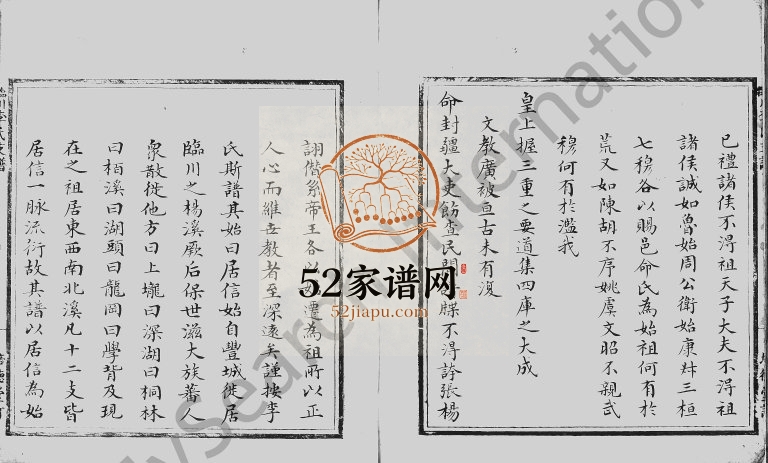 已禮諸侯不淂祖天子大夫不淂祖
諸侯誠如魯始周公衛始康叔三桓
七穆各以賜邑命氏為始祖何有於
荒又如陳胡不序姚虞文昭不親武
穆何有於濫哉
皇上握三重之要道集四庫之大成
文教廣被亘古未有復
命封疆大吏飭查民間譜牒不淂誇張楊
詡僭系帝王各以始遷為祖所以正
人心而維世教者至深遠矣謹按李
氏斯譜其始曰居信始自豐城徙居
臨川之楊溪厥后保世滋大族蕃人
衆散徙他方曰上壠曰深湖曰桐林
曰栢溪曰湖頭曰龍岡曰學背及現
在之祖居東西南北溪凡十二支皆
居信一脉流衍故其譜以居信為始
52家谱网
52jiapu.com